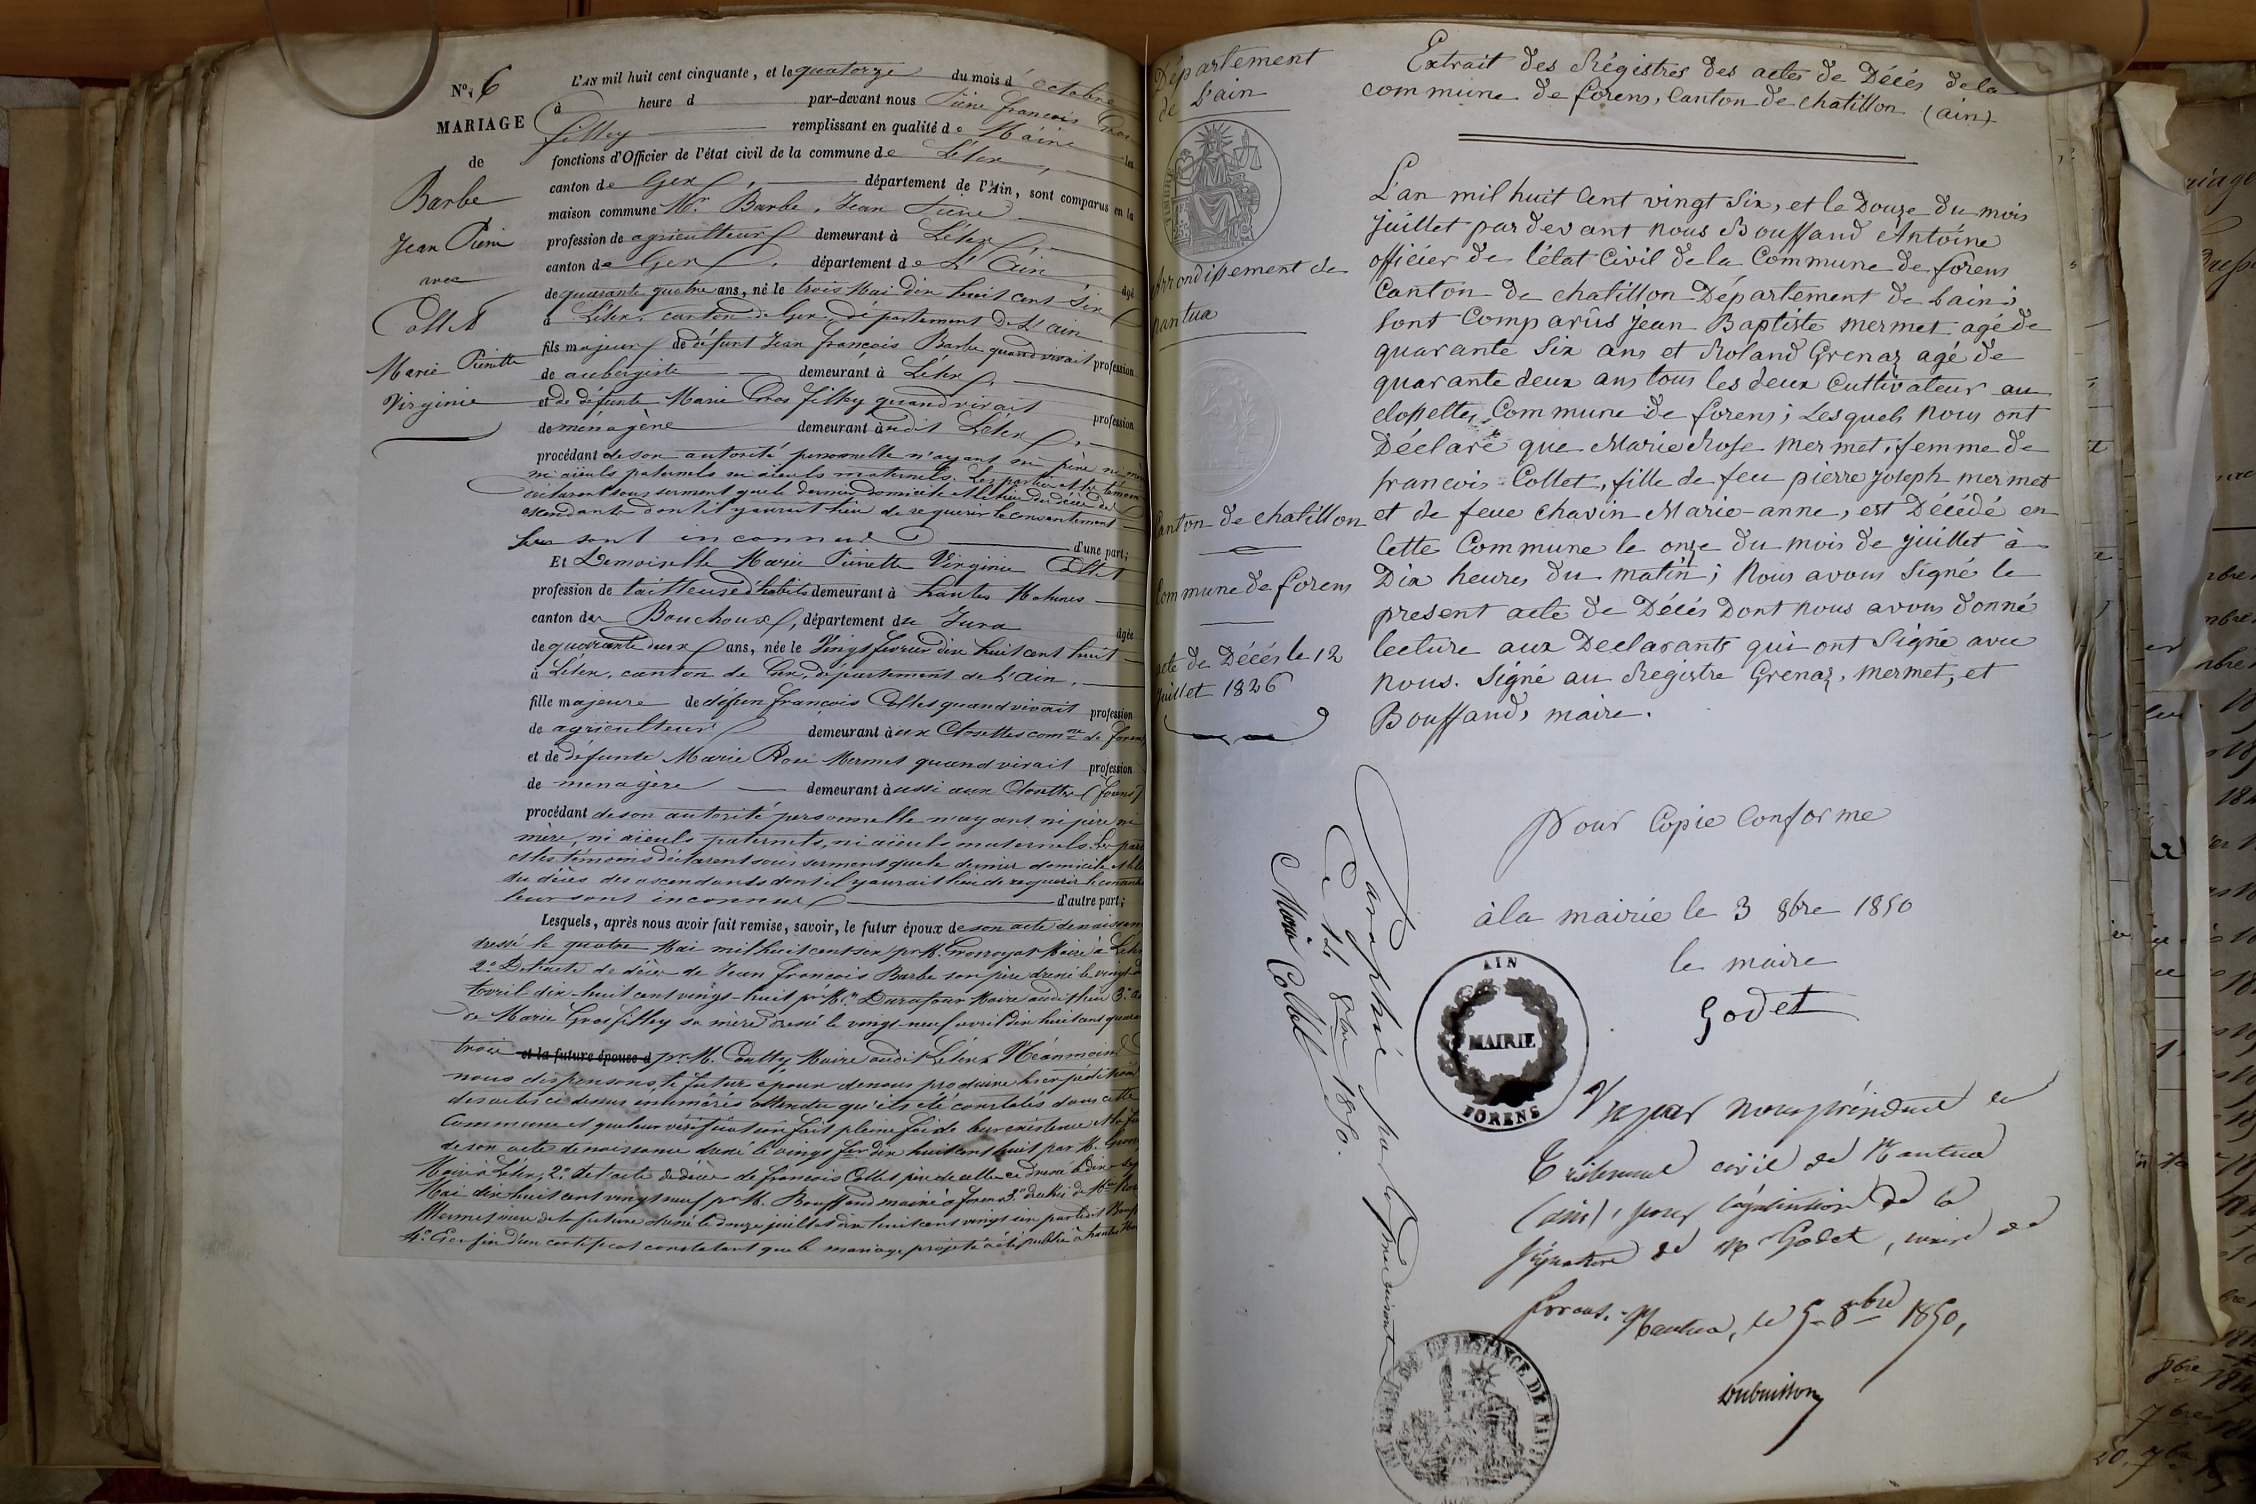 N°. 6
MARIAGE
de
Barbe
Jean Pierre
avec
Collet
Marie Pierrette
Virginie
L'AN mil huit cent cinquante, et le quatorze du mois d'octobre
à heure d par-devant nous Pierre François Gros
filley remplissant en qualité de Maire les
fonctions d'Officier de l'état civil de la commune de Lélex,
canton de Gex, département de l'Ain, sont comparus en la
maison commune Mr. Barbe, Jean Pierre
profession de agriculteur demeurant à Lélex,
canton de Gex, département de L'Ain âgé
de quarante quatre ans, né le trois Mai dix huit cent six
à Lélex, canton de Gex, département de L'ain
fils majeur de défunt Jean françois Barbe quand vivait profession
de aubergiste demeurant à Lélex,
et de défunte Marie Gros filley quand vivait profession
de ménagère demeurant àudit Lélex,
procédant de son autorité personnelle n'ayant ni père ni mère
ni aïeuls paternels ni aïeuls maternels. Les parties et les témoins
déclarent sous serment que le dernier domicile et le lieu du décès des
ascendants dont il y aurait lieu de requérir le consentement
leur sont inconnus d'une part;
Et Demoiselle Marie Pierrette Virginie Collet
profession de tailleuse d'habits demeurant à hautes Molunes
canton des Bouchoux, département du Jura âgée
de quarante deux ans, née le Vingt fevrier dix huit cent huit
à Lélex, canton de Gex, département de L'ain,
fille majeure de défun françois Collet quand vivait profession
de agriculteur demeurant àux Closettes comne de forens
et de défunte Marie Rose Mermet quand vivait profession
de ménagère demeurant àussi aux Closettes (forens)
procédant de son autorité personnelle n'ayant ni père ni
mère, ni aïeuls paternels, ni aïeuls maternels. Les parties
et les témoins déclarent sous serment que le dernier domicile et le lieu
du décès des ascendants dont il y aurait lieu de requérir le consent
leur sont inconnus d'autre part;
Lesquels, après nous avoir fait remise, savoir, le futur époux de son acte de naissance
dressé le quatre Mai mil huit cent six pr M. Grosroyat Maire à Lélex
2° De l'acte de décès de Jean françois Barbe son père dressé le vingt
Avril dix-huit cent vingt-huit pr Mr. Durafour Maire audit lieu 3°
de Marie Grosfilley sa mère dressé le vingt-neuf avril dix huit cent quarante
trois et la future épouse d pr M. Coutty, Maire audit Lélex Néanmoins
nous dispensons le futur époux de nous produire les expéditions
des actes ci dessus enumérés attendu qu'ils été constatés dans cette
Commune et que leur vérification fait pleine foi de leur existence et la future
de son acte de naissance dressé le vingt fer dix huit cent huit par M.
Maire à Lélex, 2° de l'acte de décès de francois Collet père de celle ci dressé le dix sept
Mai dix huit cent vingt neuf pr M. Bouffand maire à forens 3° de celui de Mie Rose
Mermet mère de la future dressé le douze juillet dix huit cent vingt six par ledit Bouff
4° Et enfin d'un certificat constatant que le mariage projeté a été publié à hautes
Département
de L'ain
Arrondissement de
nantua
Canton de chatillon
Commune de forens
acte de Décés le 12
juillet 1826
Extrait des Régistres des actes de Décés de la
commune de forens, canton de chatillon (ain)
L'an mil huit Cent vingt Six, et le Douze du mois
juillet par devant nous Bouffand Antoine
officier de l'état Civil de la Commune de forens
Canton de chatillon Département de Lain;
Sont Comparûs Jean Baptiste Mermet agé de
quarante Six ans et Roland Grenaz agé de
quarante deux ans tous les deux Cultivateur au
closettes, Commune de forens; Lesquels Nous ont
Déclaré que Marie Rose Mermet, femme de
francois Collet, fille de feu pierre Joseph Mermet
et de feue Chavin Marie-anne, est Décédé en
Cette Commune le onze du mois de juillet à
Dix heures du matin; Nous avons Signé le
present acte de Décés Dont nous avons donné
lecture aux Declarants qui ont Signé avec
nous. Signé au Registre Grenaz, Mermet, et
Bouffand, maire.
Pour Copie Conforme
à la mairie le 3 8bre 1850
le maire
Godet
AIN
MAIRIE
FORENS
Vu par nous président du
Tribunal civil de Nantua
(ain), pour légalisation de la
signature de M Godet, maire de
forens. Nantua, le 5 8bre 1850,
Dubuisson
INSTANCE DE NANTUA
Paraphé par la future
Ce 14 8bre 1850.
Marie Collet